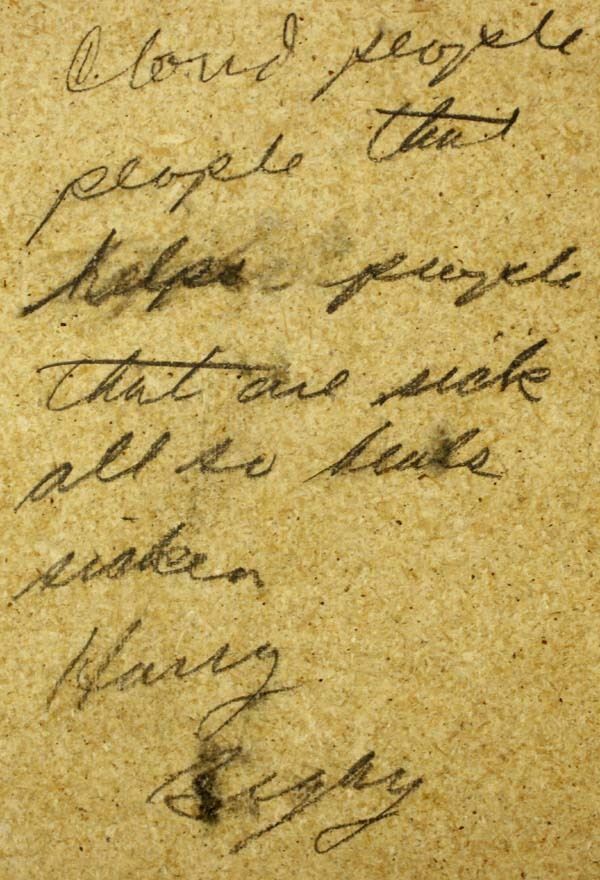 Cloud people
people that
helps people
that are sick
all so heals
sicken
Harry
Bigby